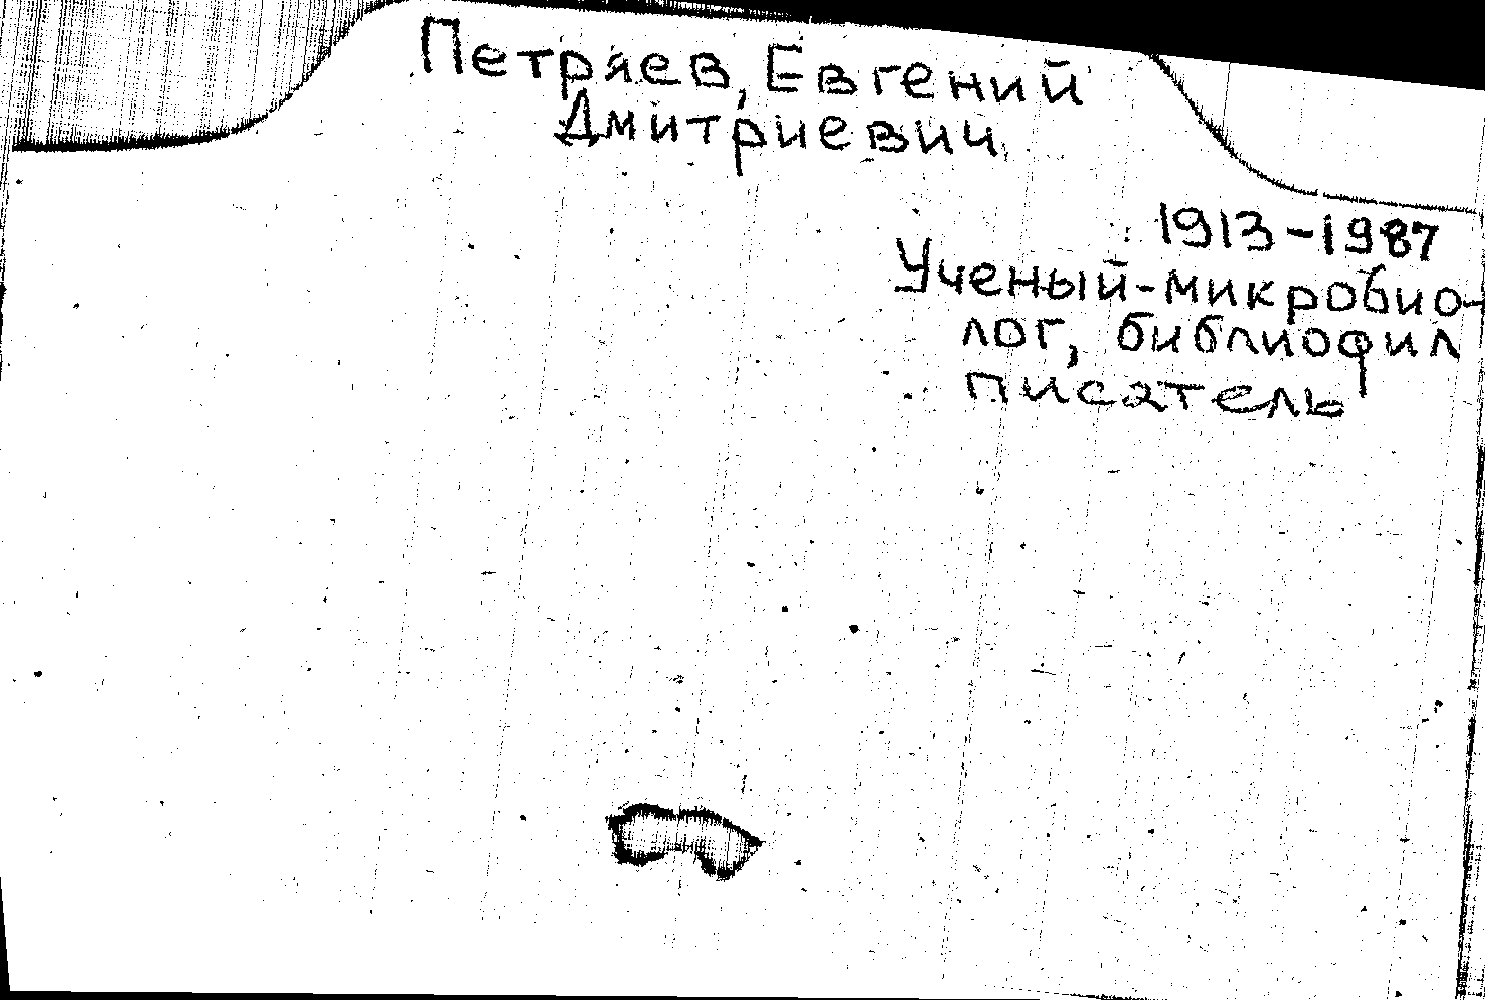 Петряев, Евгений
Дмитриевич
1913-1987
Ученый-микробио-
лог, библиофил
писатель